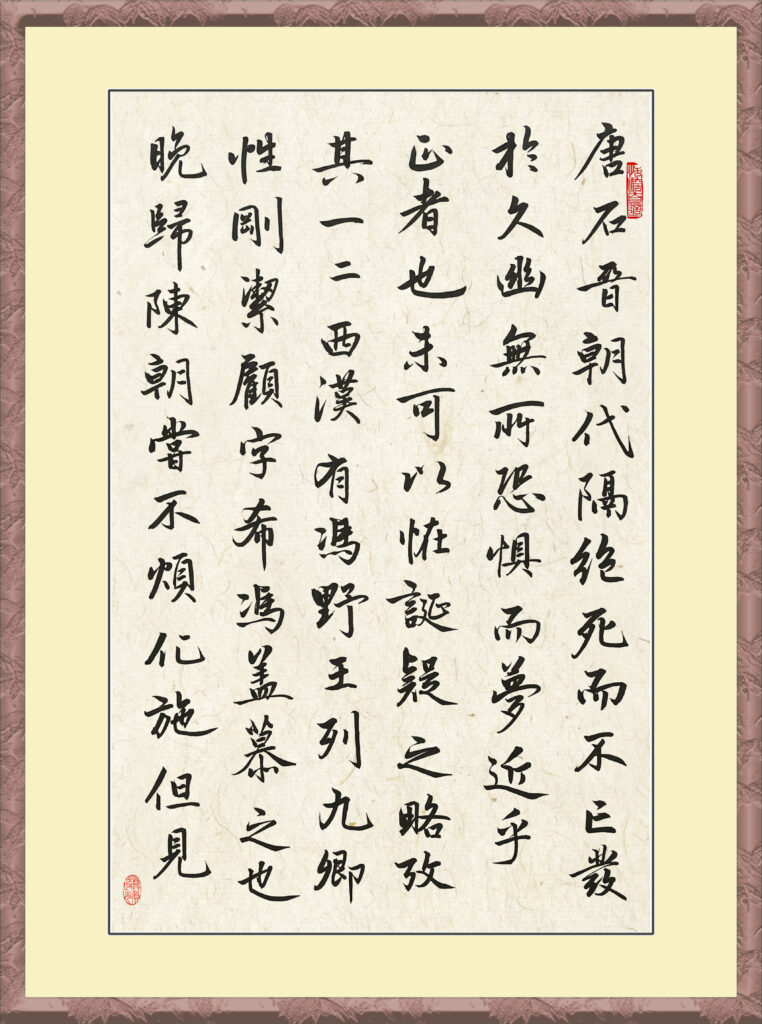 唐石晋朝代隔绝死而不亡發
於久幽無所恐惧而夢近乎
正者也未可以恠誕疑之略攷
其一二西漢有馮野王列九卿
性剛潔顧字希馮盖慕之也
晚歸陳朝嘗不煩仁施但見